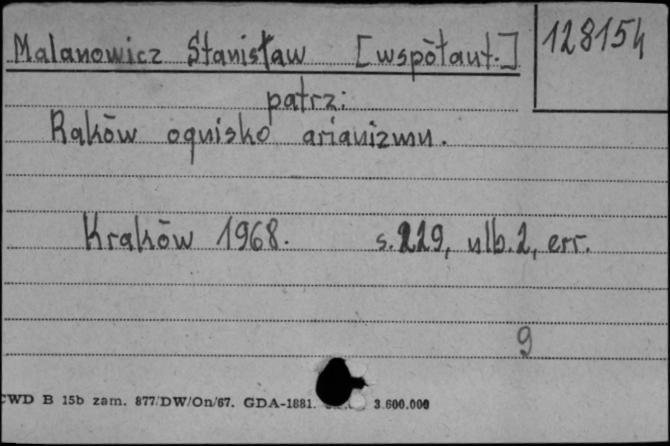 Malanowicz Stanisław [współaut.] 128154
patrz:
Raków ognisko arianizmu.
Kraków 1968. s. 229, nlb. 2, err.
9
CWD B 15b zam. 877/DW/On/67. GDA-1881. 3.600.000